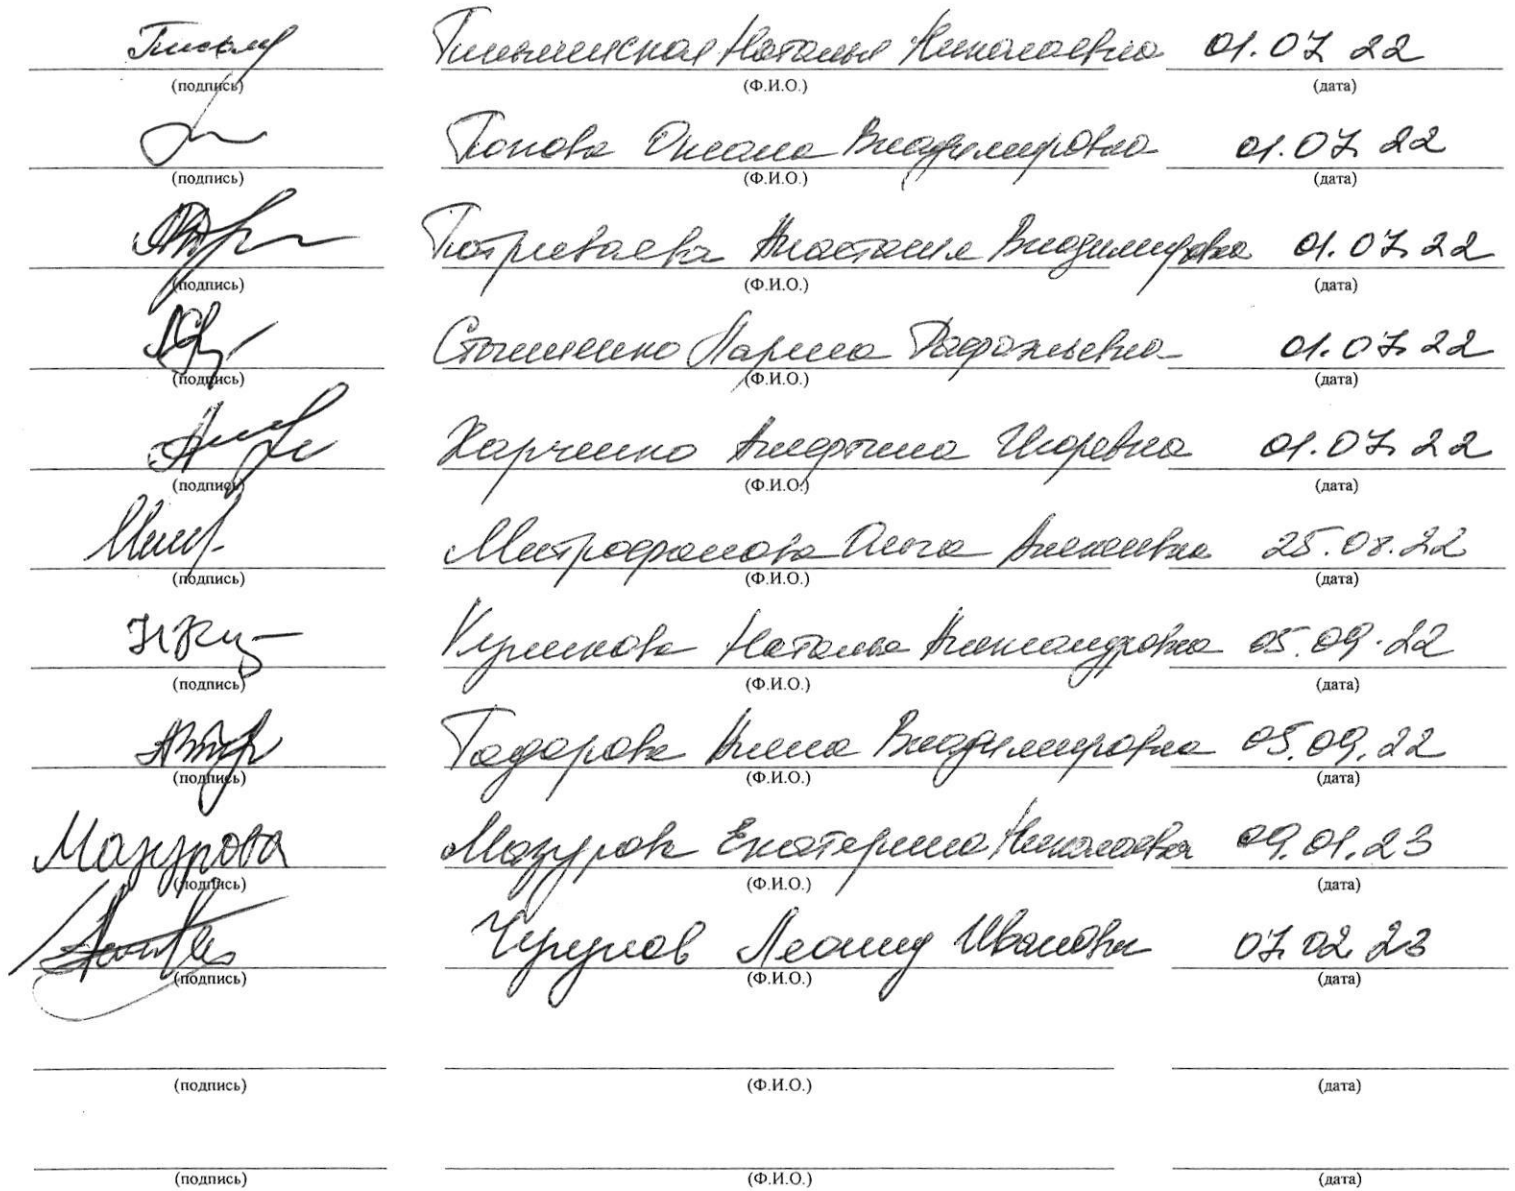 Наталья Николаевна 01.07.22
(подпись) (Ф.И.О.) (дата)
Попова Оксана Владимировна 01.07.22
(подпись) (Ф.И.О.) (дата)
Потриваева Анастасия Владимировна 01.07.22
(подпись) (Ф.И.О.) (дата)
Лариса Рафаэльевна 01.07.22
(подпись) (Ф.И.О.) (дата)
Харченко Альфина Игоревна 01.07.22
(подпись) (Ф.И.О.) (дата)
Митрофанова Ольга Алексеевна 25.08.22
(подпись) (Ф.И.О.) (дата)
Куликова Наталья Александровна 05.09.22
(подпись) (Ф.И.О.) (дата)
Тодорова Анна Владимировна 05.09.22
(подпись) (Ф.И.О.) (дата)
Мазурова Мазурова Екатерина Николаевна 09.01.23
(подпись) (Ф.И.О.) (дата)
Леонид Иванович 07.02.23
(подпись) (Ф.И.О.) (дата)
(подпись) (Ф.И.О.) (дата)
(подпись) (Ф.И.О.) (дата)